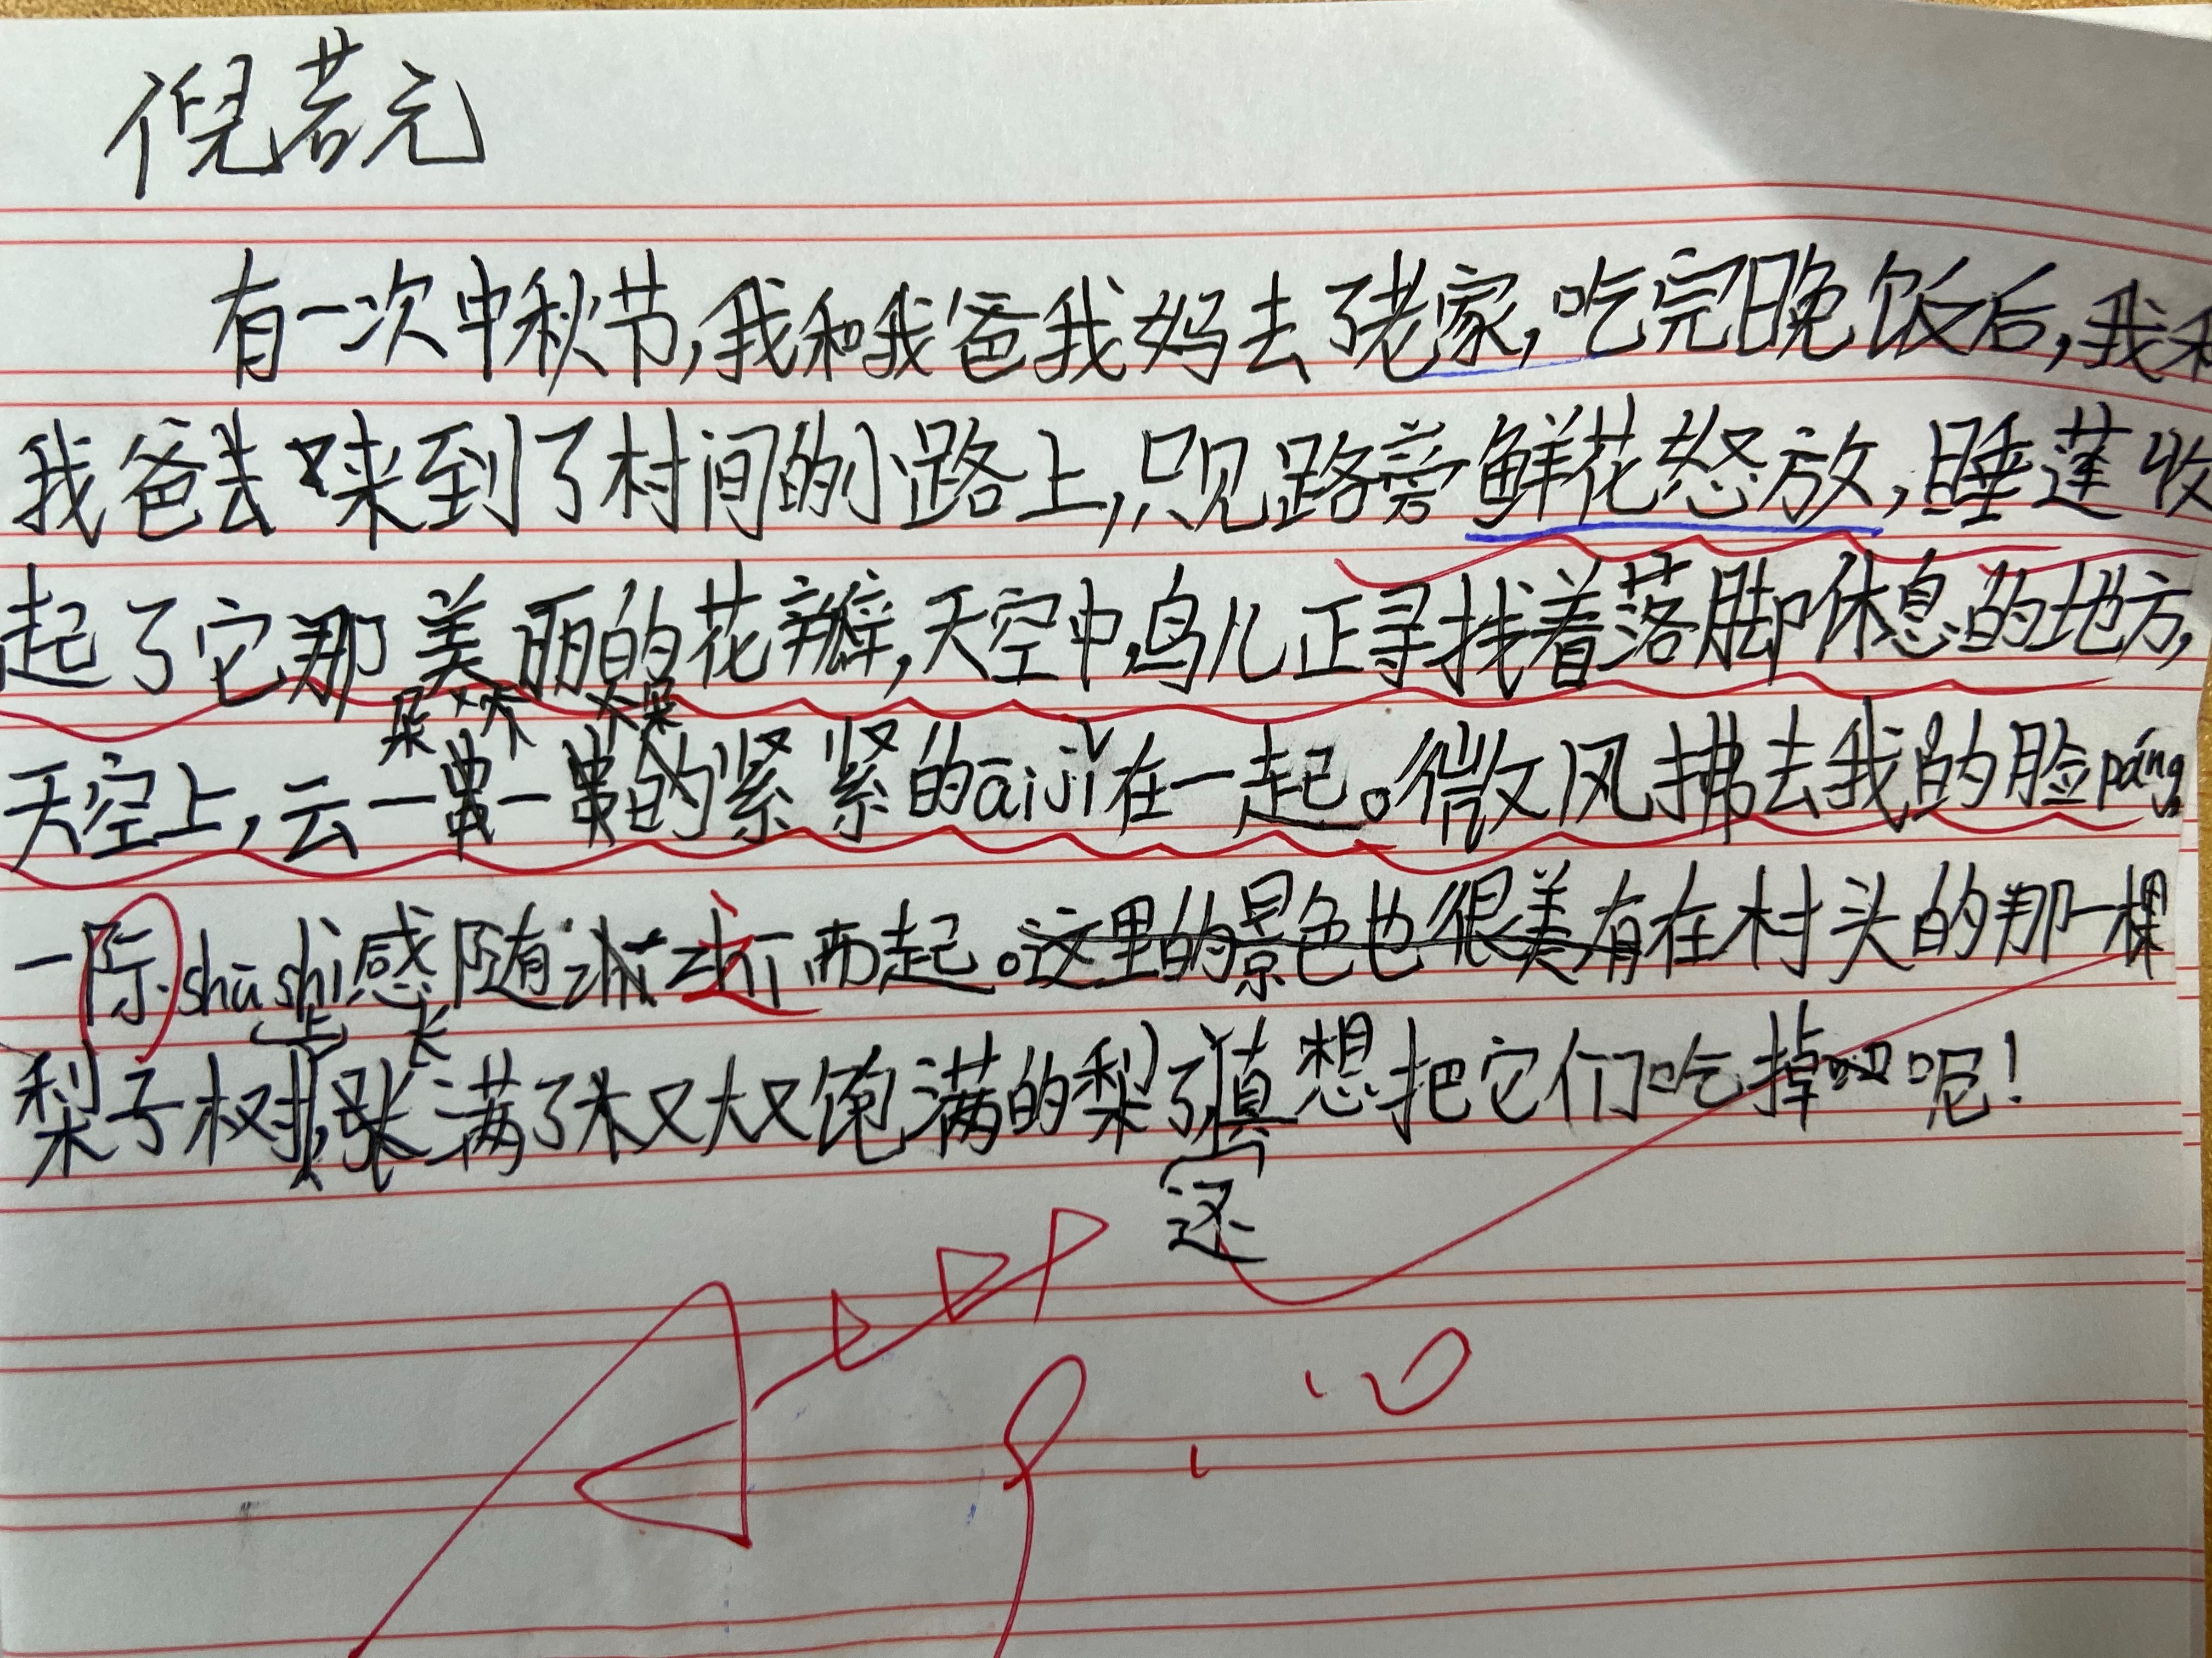 倪若元
有一次中秋节,我和我爸我妈去了老家,吃完晚饭后,我和
我爸去来到了村间的小路上,只见路旁鲜花怒放,睡莲收
起了它那美丽的花瓣,天空中,鸟儿正寻找着落脚休息的地方,
天空上,云一串一串的紧紧的āijǐ在一起。微风拂去我的脸páng,
一际shūshì感随之而起。这里的景色也很美有在村头的那一棵
上 长
梨子树,张满了又大又饱满的梨了真想把它们吃掉呢!
还